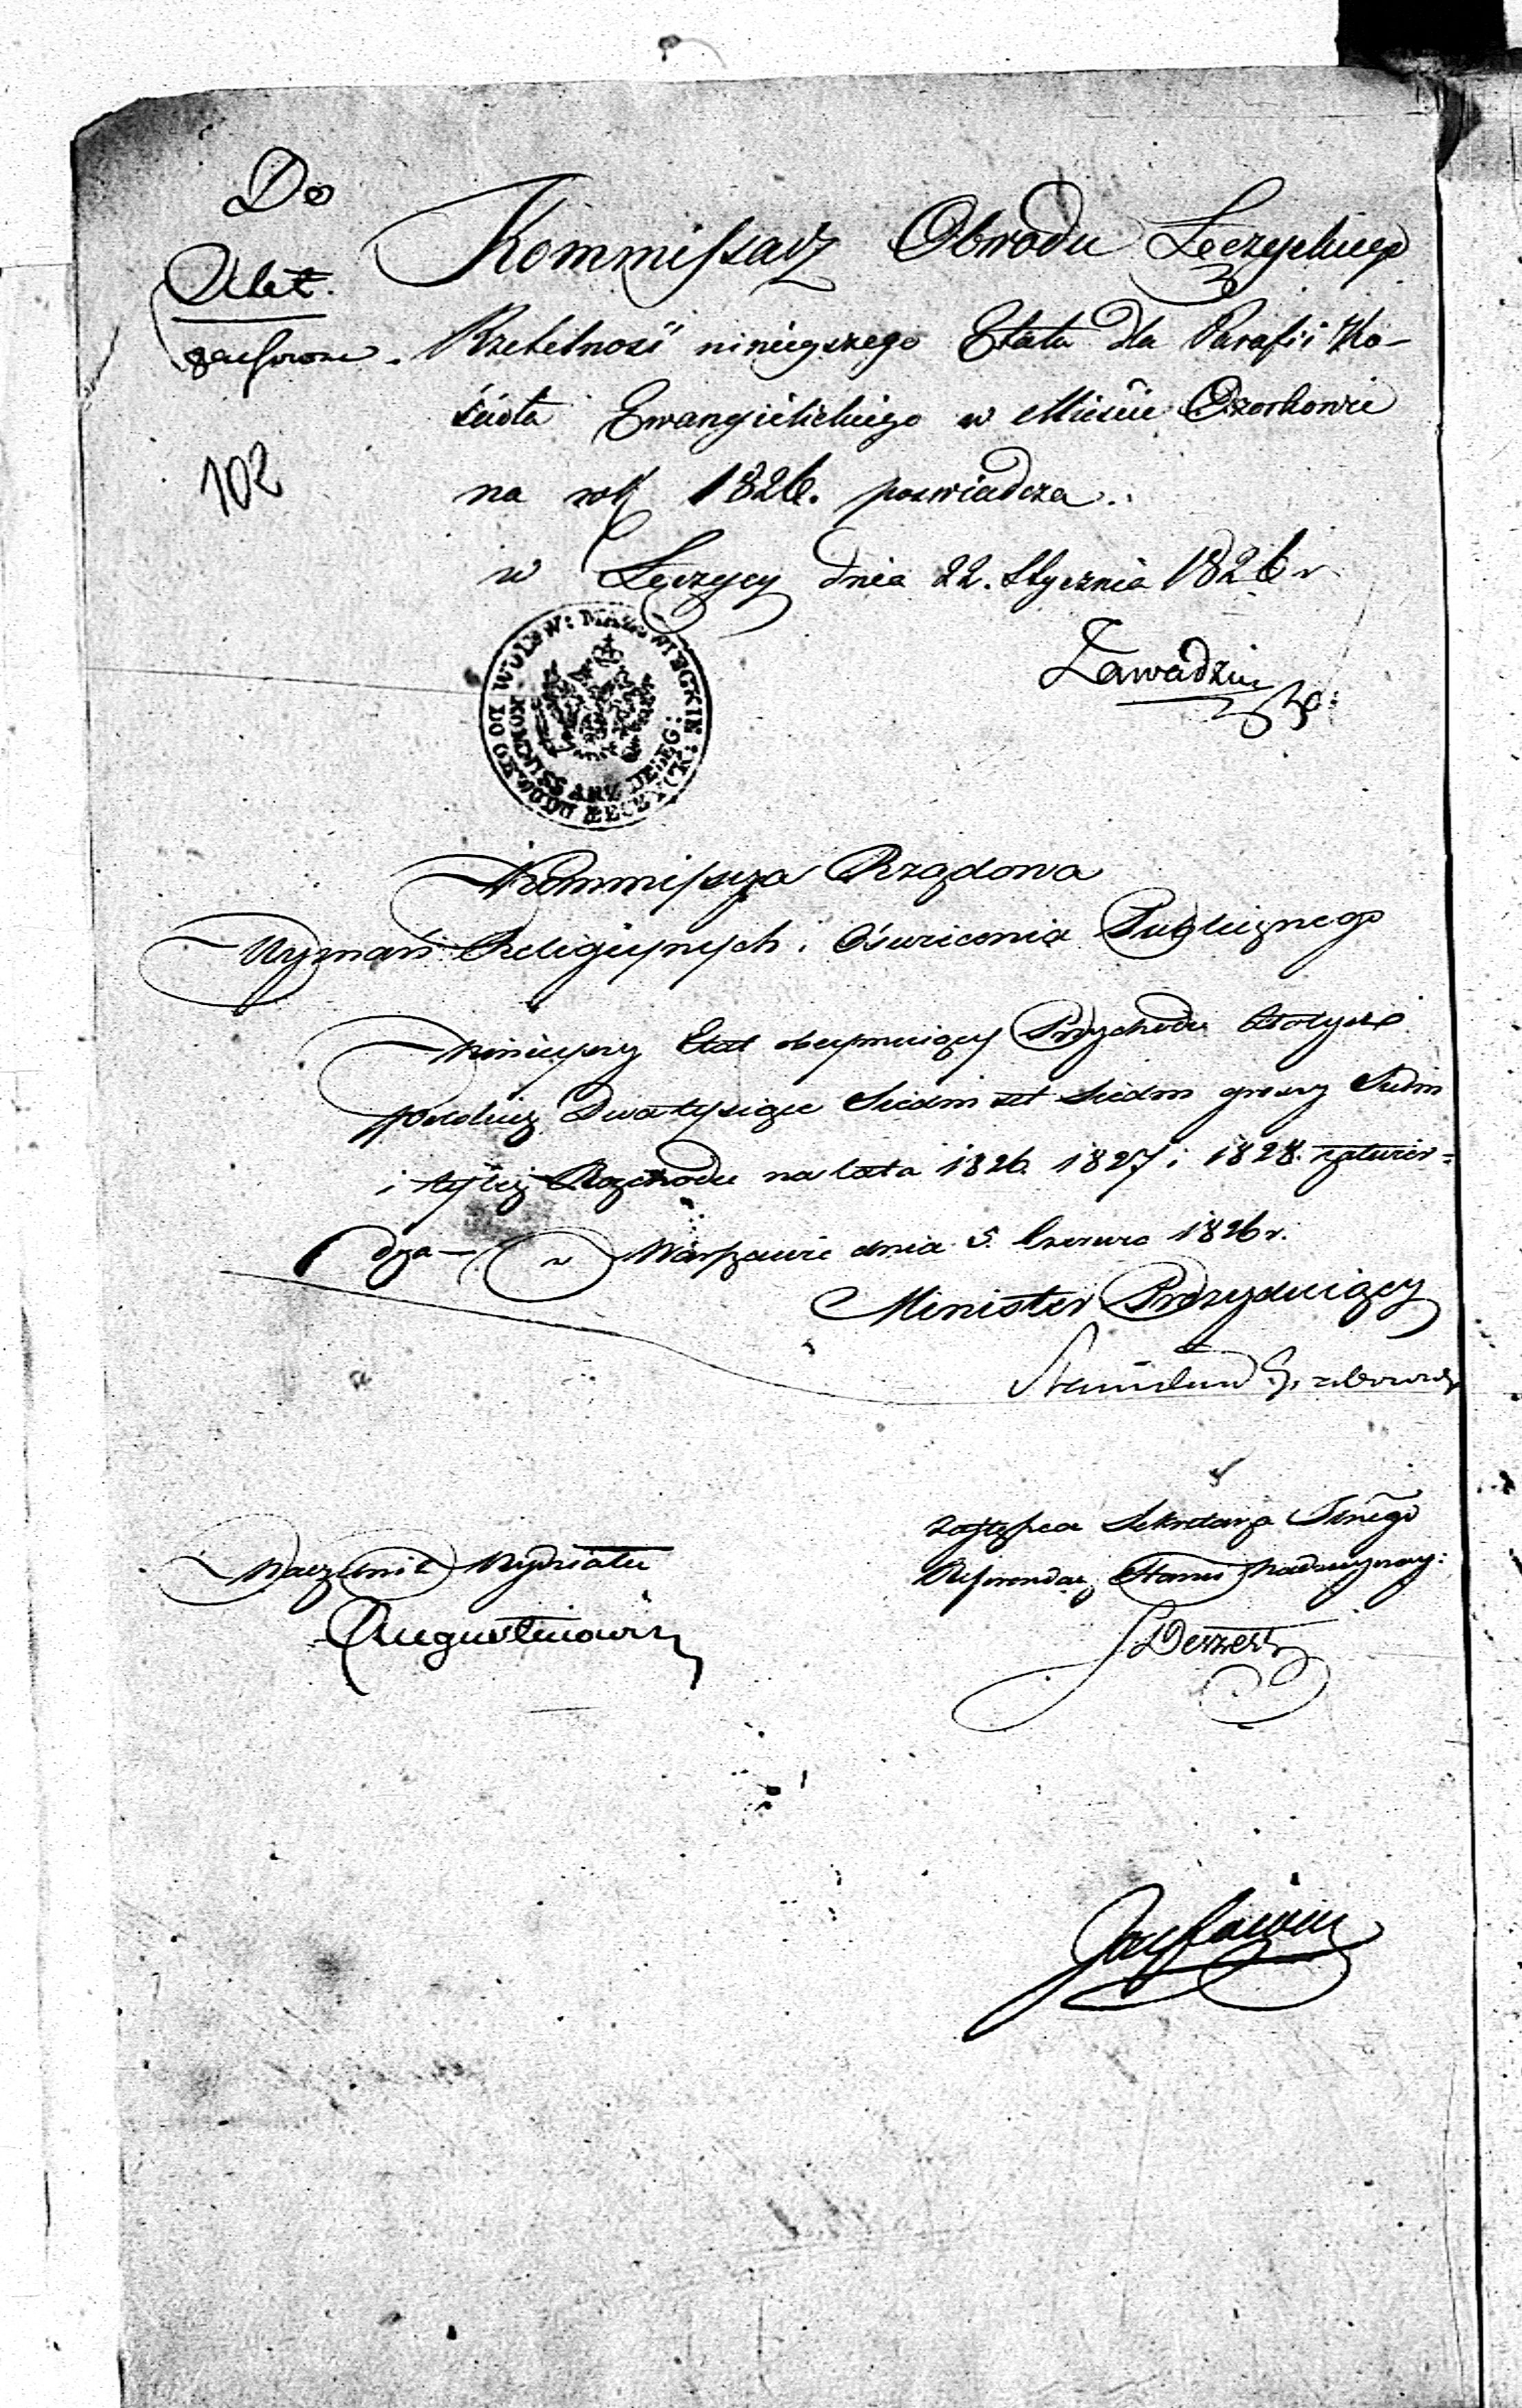 Do
Kommissarz Obwodu Łęczyckiego
Rzetelność ninieyszego Etatu dla Parafii Ko-
ścioła Ewangielickiego w Mieście Ozorkowie
102
na rok 1826. poswiadcza.
w Łęczycy dnia 22. Stycznia 1826 r.
Zawadzki
DO WOIEW: MAZOWIECKIE: KOMMISSARZ DELEG: OBWODU ŁĘCZYCK:
Kommissya Rządowa
Wyznań Religiynych i Oświecenia Publicznego
Ninieyszy Etat obeymuiący Przychodu Złotych
polskich Dwa tysiące Siedm set siedm groszy Siedm
i tyleż Rozchodu na lata 1826. 1827 i 1828. zatwier=
dza — w Warszawie dnia 5. Czerwca 1826 r.
Minister Prezyduiący
Stanisław Grabowski
Zastępca Sekretarza Jnego
Naczelnik Wydziału
Referendarz Stanu Nadzwyczay:
Augustinowicz